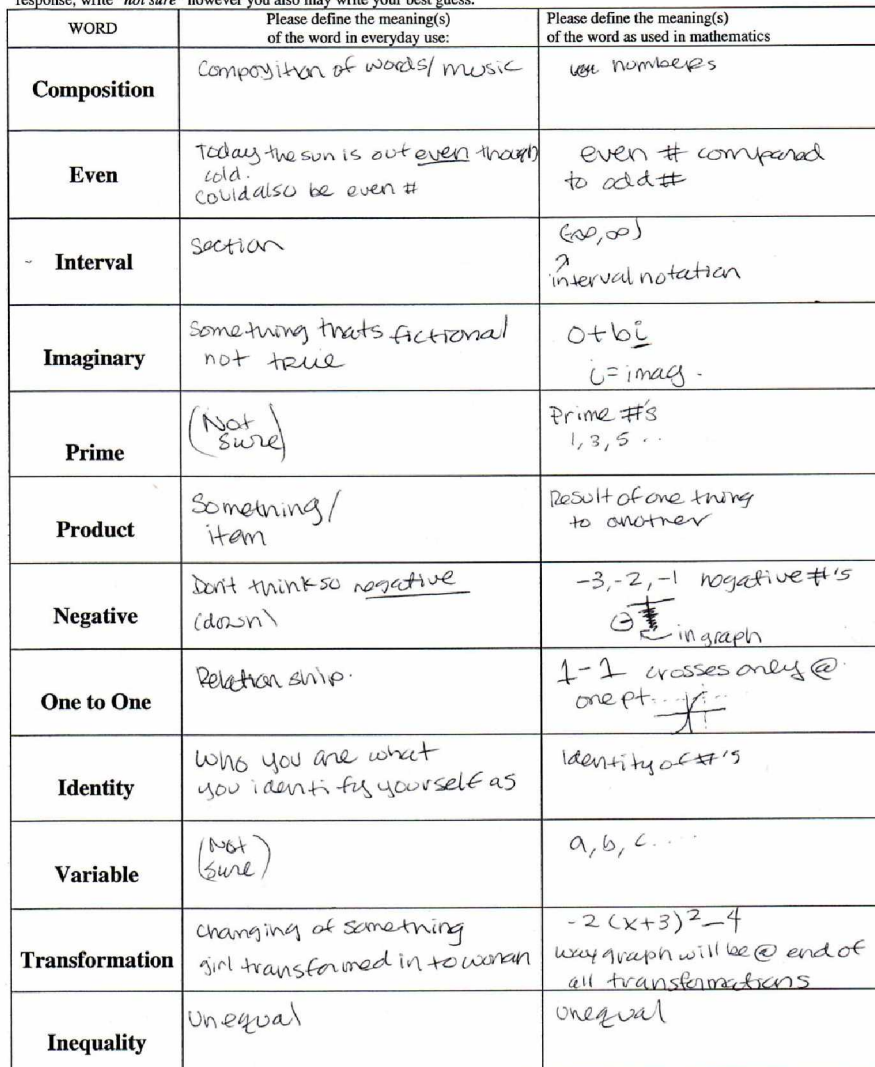 response, write "not sure" however you also may write your best guess.
WORD
Please define the meaning(s)
of the word in everyday use:
Please define the meaning(s)
of the word as used in mathematics
Composition
Composition of words/music
numbers
Even
Today the sun is out even though
cold.
Could also be even #
even # compared
to odd #
Interval
Section
(-∞,∞)
interval notation
Imaginary
Something thats fictional
not true
0+bi
i=imag.
Prime
(Not
Sure)
Prime #'s
1, 3, 5 ..
Product
Something/
item
Result of one thing
to another
Negative
Don't think so negative
(down)
-3, -2, -1 negative #'s
in graph
One to One
Relation ship.
1-1 crosses only @
one pt....
Identity
Who you are what
you identify yourself as
Identity of #'s
Variable
(Not
Sure)
a, b, c....
Transformation
changing of something
girl transformed in to woman
-2(x+3)²-4
way graph will be @ end of
all transformations
Inequality
Unequal
unequal